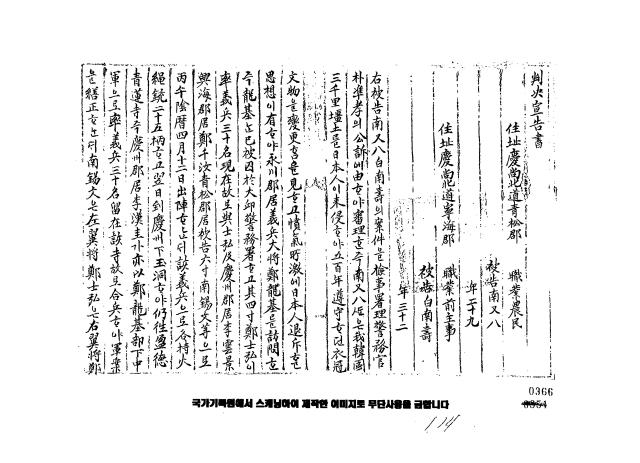 判決宣告書
住址慶尙北道青松郡 職業農民
被告南又八
年二十九
住址慶尙北道寧海郡 職業前主事
被告白南壽
年三十二
右被告南又八白南壽의案件을檢事署理警務官
朴準孝의公訴에由ᄒᆞ야審理ᄒᆞ주南又八은我韓國
三千里壃土를日本人이來侵ᄒᆞ야五百年遵守ᄒᆞ던衣冠
文物을變更홈을見ᄒᆞ고憤氣所激에日本人退斥ᄒᆞᆯ
思想이有ᄒᆞ야永川郡居義兵大將鄭龍基를訪問ᄒᆞᆫ
즉龍基ᄂᆞᆫ已被囚於大邱警務署ᄒᆞ고其四寸鄭士弘이
率義兵三十名現在故로與士弘及慶州郡居李雲景
興海郡居鄭千汝青松郡居被告六寸南錫文等으로
丙午陰曆四月十二日出陣ᄒᆞᄂᆞᆫ디該義兵으로各持火
繩銃二十五柄ᄒᆞ고翌日到慶州下玉洞ᄒᆞ야仍往盈德
青蓮寺즉慶州郡居李漢圭가亦以鄭龍基部下中
軍으로率義兵三十名留在該寺故로合兵ᄒᆞ야軍案
을繕正ᄒᆞᄂᆞᆫ디南錫文은左翼將鄭士弘은右翼將鄭
0366
국가기록원에서 스캐닝하여 제작한 이미지로 무단사용을 금합니다